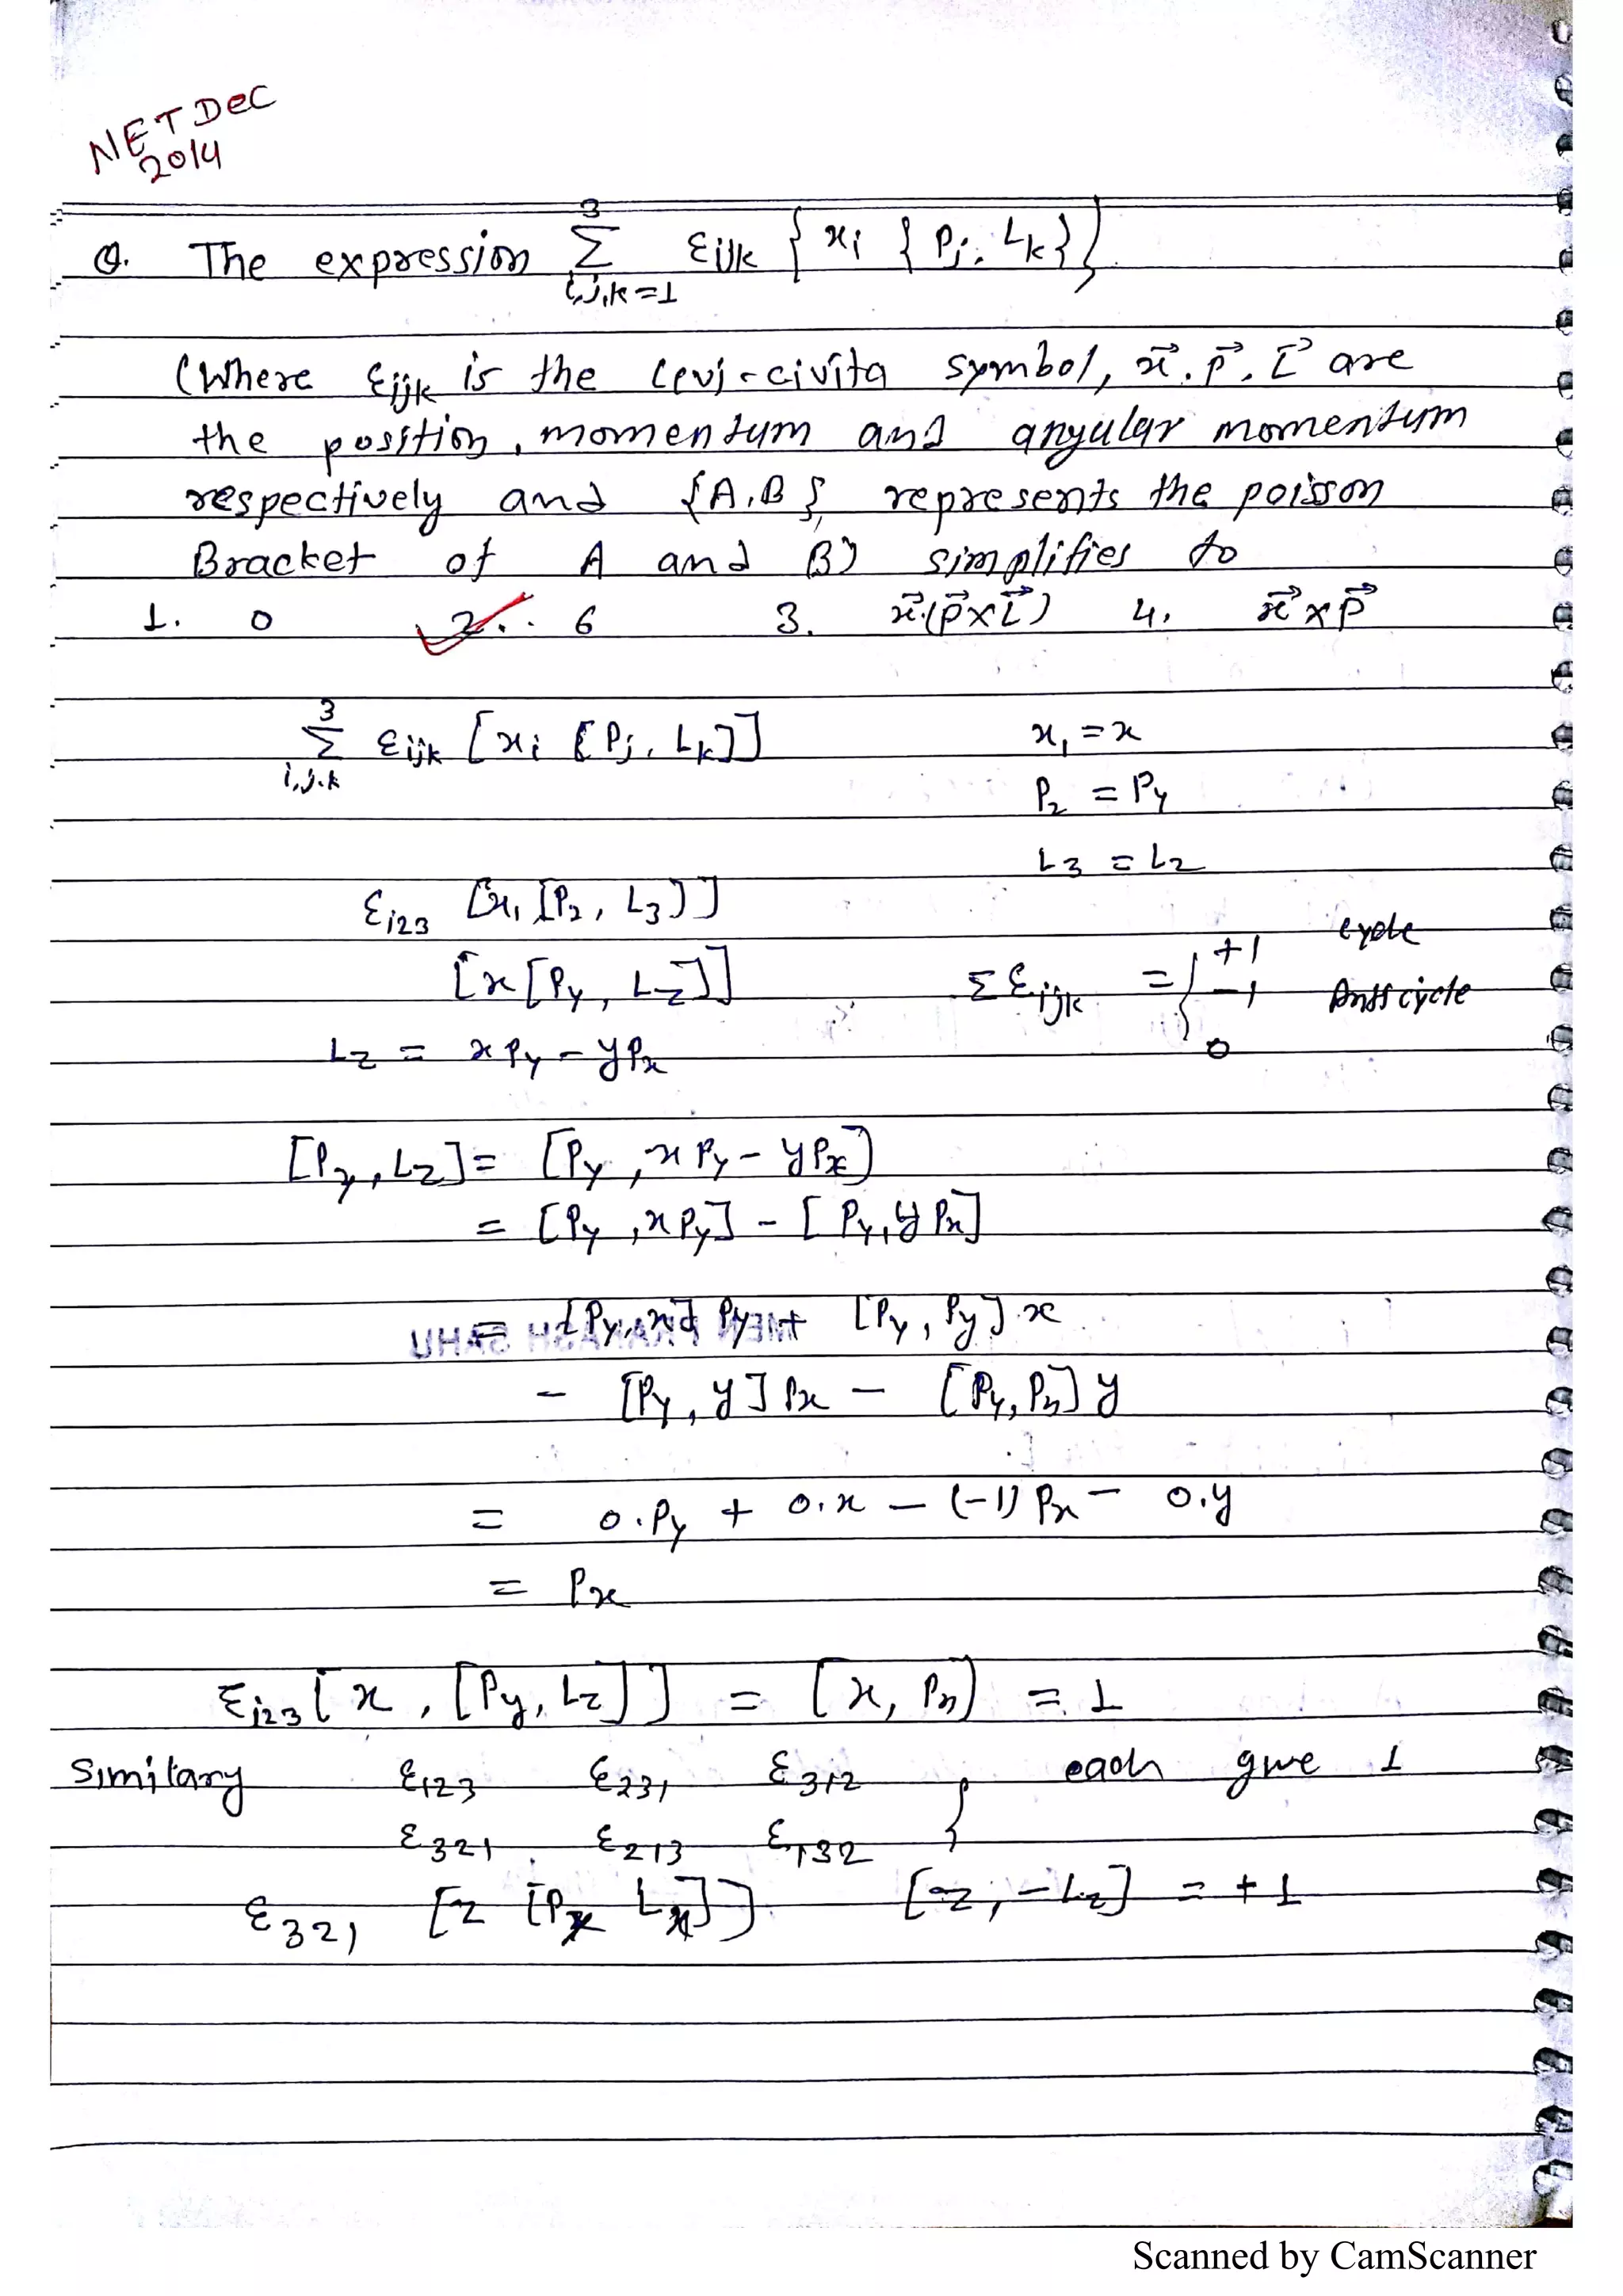 NET Dec
2014
Q. The expression 3 Σ i,j,k=1 εijk { xi { Pj, Lk}}
(Where εijk is the Levi-civita symbol, x⃗, p⃗, L⃗ are
the position, momentum and angular momentum
respectively and {A,B} represents the poisson
Bracket of A and B) simplifies to
1. 0 2. 6 3. x⃗.(p⃗×L⃗) 4. x⃗×p⃗
3 Σ i,j,k εijk [xi [Pj, Lk]] x₁ = x
P₂ = Py
L₃ = Lz
ε₁₂₃ [x₁ [P₂, L₃]]
[x [Py, Lz]] Σ εijk = { +1 cycle
-1 Anti cycle
0
Lz = xPy - yPx
[Py, Lz] = [Py, xPy - yPx]
= [Py, xPy] - [Py, yPx]
= [Py, x] Py + [Py, Py] x
- [Py, y] Px - [Py, Px] y
= 0.Py + 0.x - (-1) Px - 0.y
= Px
ε₁₂₃ [x, [Py, Lz]] = [x, Px] = 1
Similary ε₁₂₃ ε₂₃₁ ε₃₁₂ } each give 1
ε₃₂₁ ε₂₁₃ ε₁₃₂
ε₃₂₁ [z [P Lx]] = +1
Scanned by CamScanner